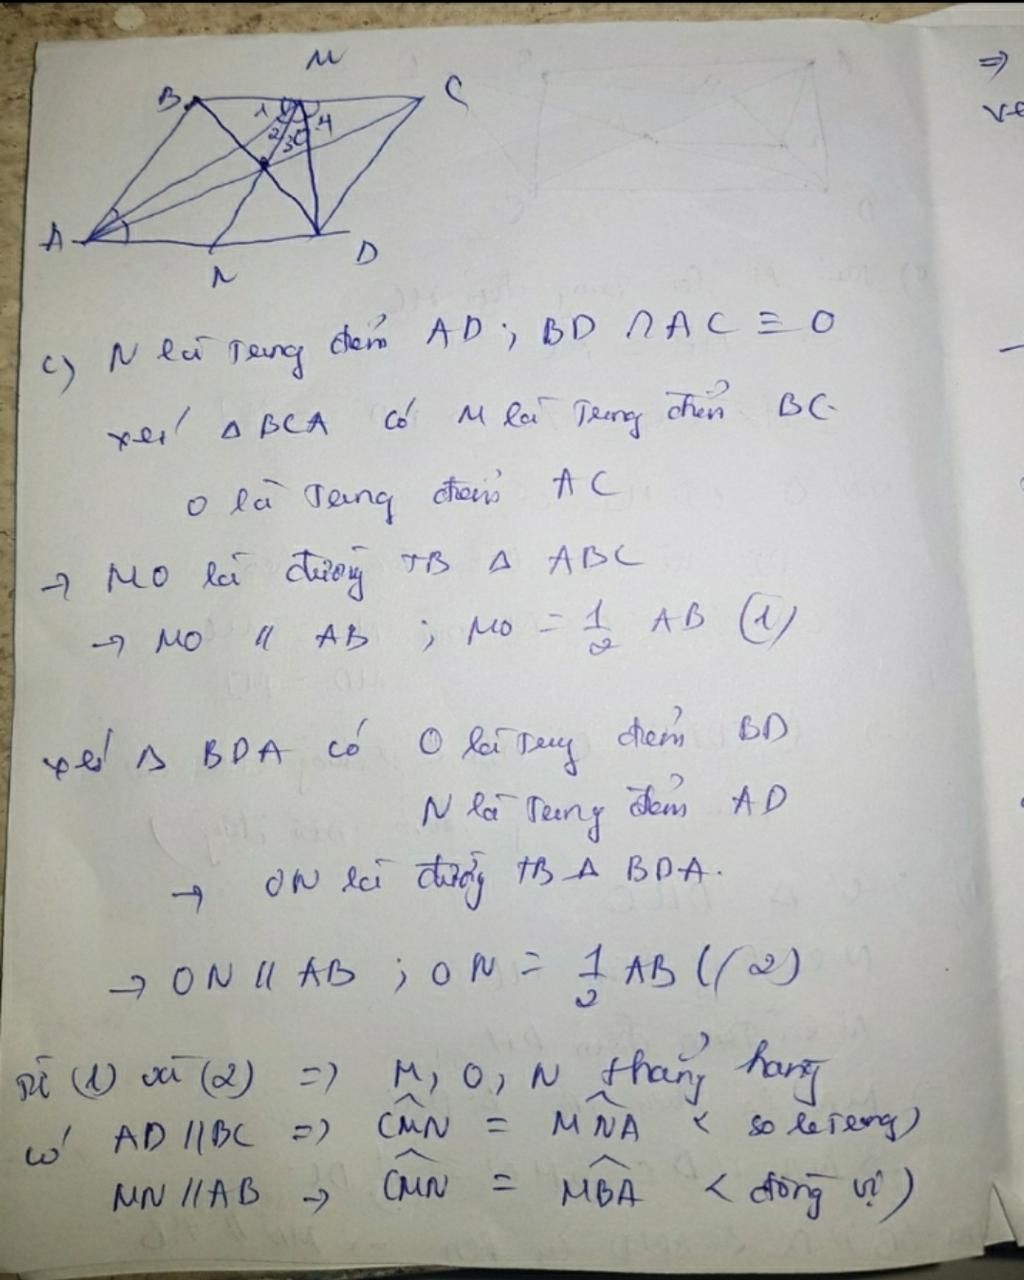 M
B
C
1
2
3
4
A
N
D
⇒
c) N là trung điểm AD ; BD ∩ AC ≡ O
xét △ BCA có M là trung điểm BC
O là trung điểm AC
→ MO là đường TB △ ABC
→ MO // AB ; MO = 1/2 AB (1)
xét △ BDA có O là trung điểm BD
N là trung điểm AD
→ ON là đường TB △ BDA.
→ ON // AB ; ON = 1/2 AB (2)
từ (1) và (2) => M, O, N thẳng hàng
có AD // BC => \widehat{CMN} = \widehat{MNA} < so le trong)
MN // AB → \widehat{CMN} = \widehat{MBA} < đồng vị )